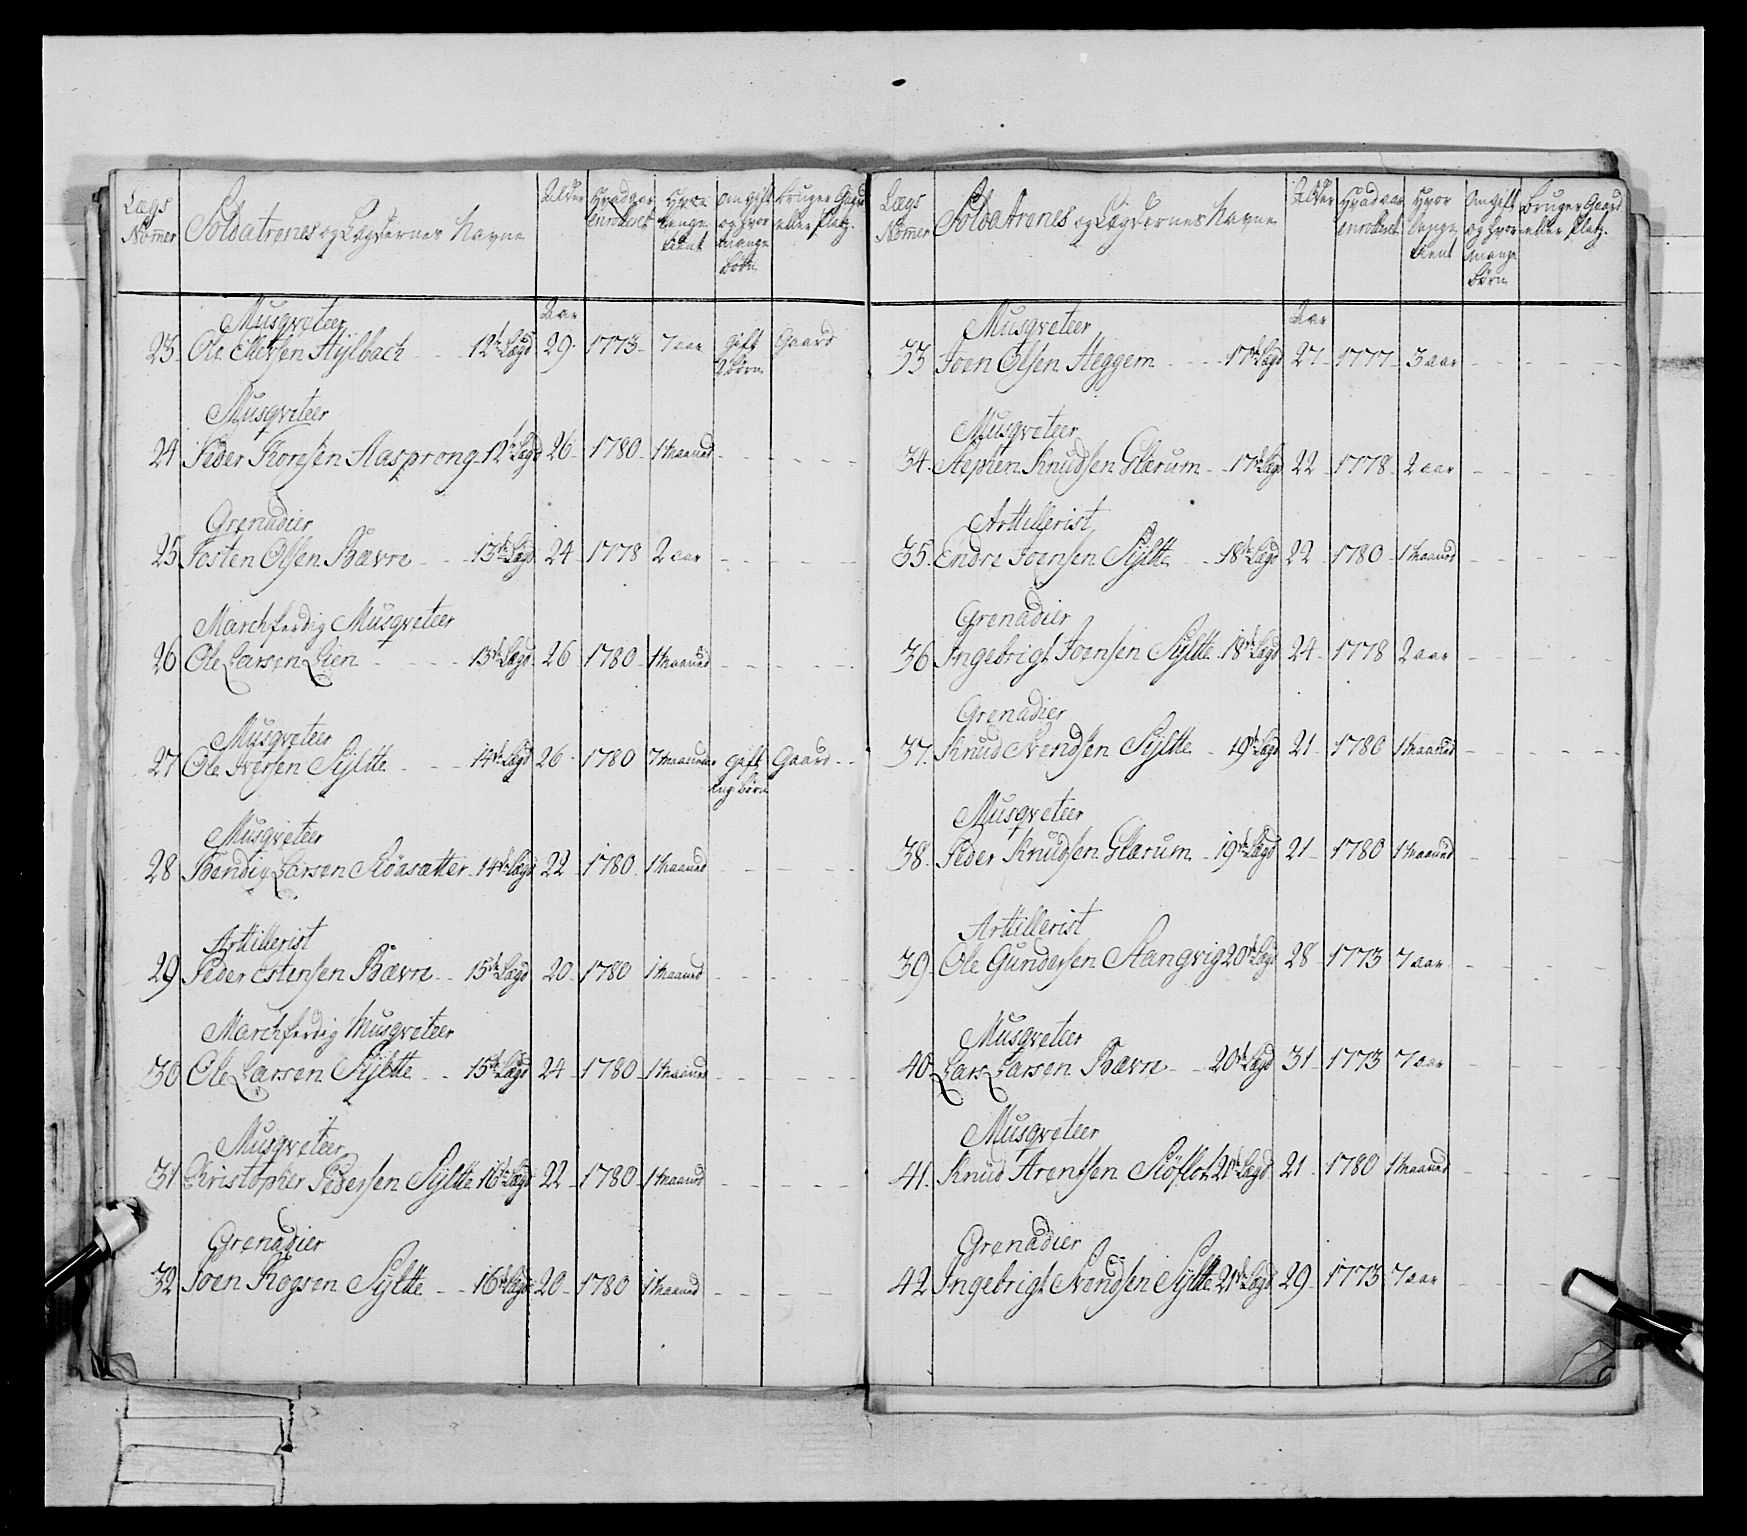 Lægs Nomer | Soldaternes og Lægdernes Navne | Alder | Hvad aar enrolleret | Hvor længe tient | Om gift og hvor mange børn | bruger Gaard eller Platz.
Aar
Musqveteer
23 Ole Ellefsen Hylbach 12te Lægd 29 1773 7 aar gift 2 børn Gaard
Musqveteer
24 Peder Thoresen Aasprong 12te Lægd 26 1780 1 Maaned
Grenadier
25 Josten Olsen Bævre 13de Lægd 24 1778 2 aar
Marchferdig Musqveteer
26 Ole Larsen Lien 13de Lægd 26 1780 1 Maaned
Musqveteer
27 Ole Iversen Sylte 14de Lægd 26 1780 7 Maaneder gift ing. børn Gaard
Musqveteer
28 Bendig Larsen Siöasætter 14de Lægd 22 1780 1 Maaned
Arttillerist
29 Peder Estensen Bævre 15de Lægd 20 1780 1 Maaned
Marchferdig Musqveteer
30 Ole Larsen Syltte 15de Lægd 24 1780 1 Maaned
Musqveteer
31 Christopher Pedersen Syltte 16de Lægd 22 1780 1 Maaned
Grenadier
32 Joen Rogsen Syltte 16de Lægd 20 1780 1 Maaned
Lægs Nomer | Soldaternes og Lægdernes Navne | Alder | Hvad aar enrolleret | Hvor længe tient | Om gift og hvor mange børn | Bruger Gaard eller Platz.
Aar
Musqveteer
33 Joen Olsen Heggem 17de Lægd 27 1777 3 aar
Musqveteer
34. Stephen Knudsen Glærum 17de Lægd 22 1778 2 aar
Arttillerist
35. Endre Joensen Syltte 18de Lægd 22 1780 1 Maaned
Grenadier
36 Ingebrigt Joensen Syltte 18de Lægd 24 1778 2 aar
Grenadier
37. Knud Svendsen Syltte 19de Lægd 21 1780 1 Maaned
Musqveteer
38. Peder Knudsen Glærum 19de Lægd 21 1780 1 Maaned
Arttillerist
39. Ole Gundersen Stangvig 20de Lægd 28 1773 7 aar
Musqveteer
40. Lars Larsen Bævre 20de Lægd 31 1773 7 aar
Musqveteer
41. Knud Arentsen Siöflot 21de Lægd 21 1780 1 Maaned
Grenadier
42 Ingebrigt Svendsen Syltte 21de Lægd 29 1773 7 aar